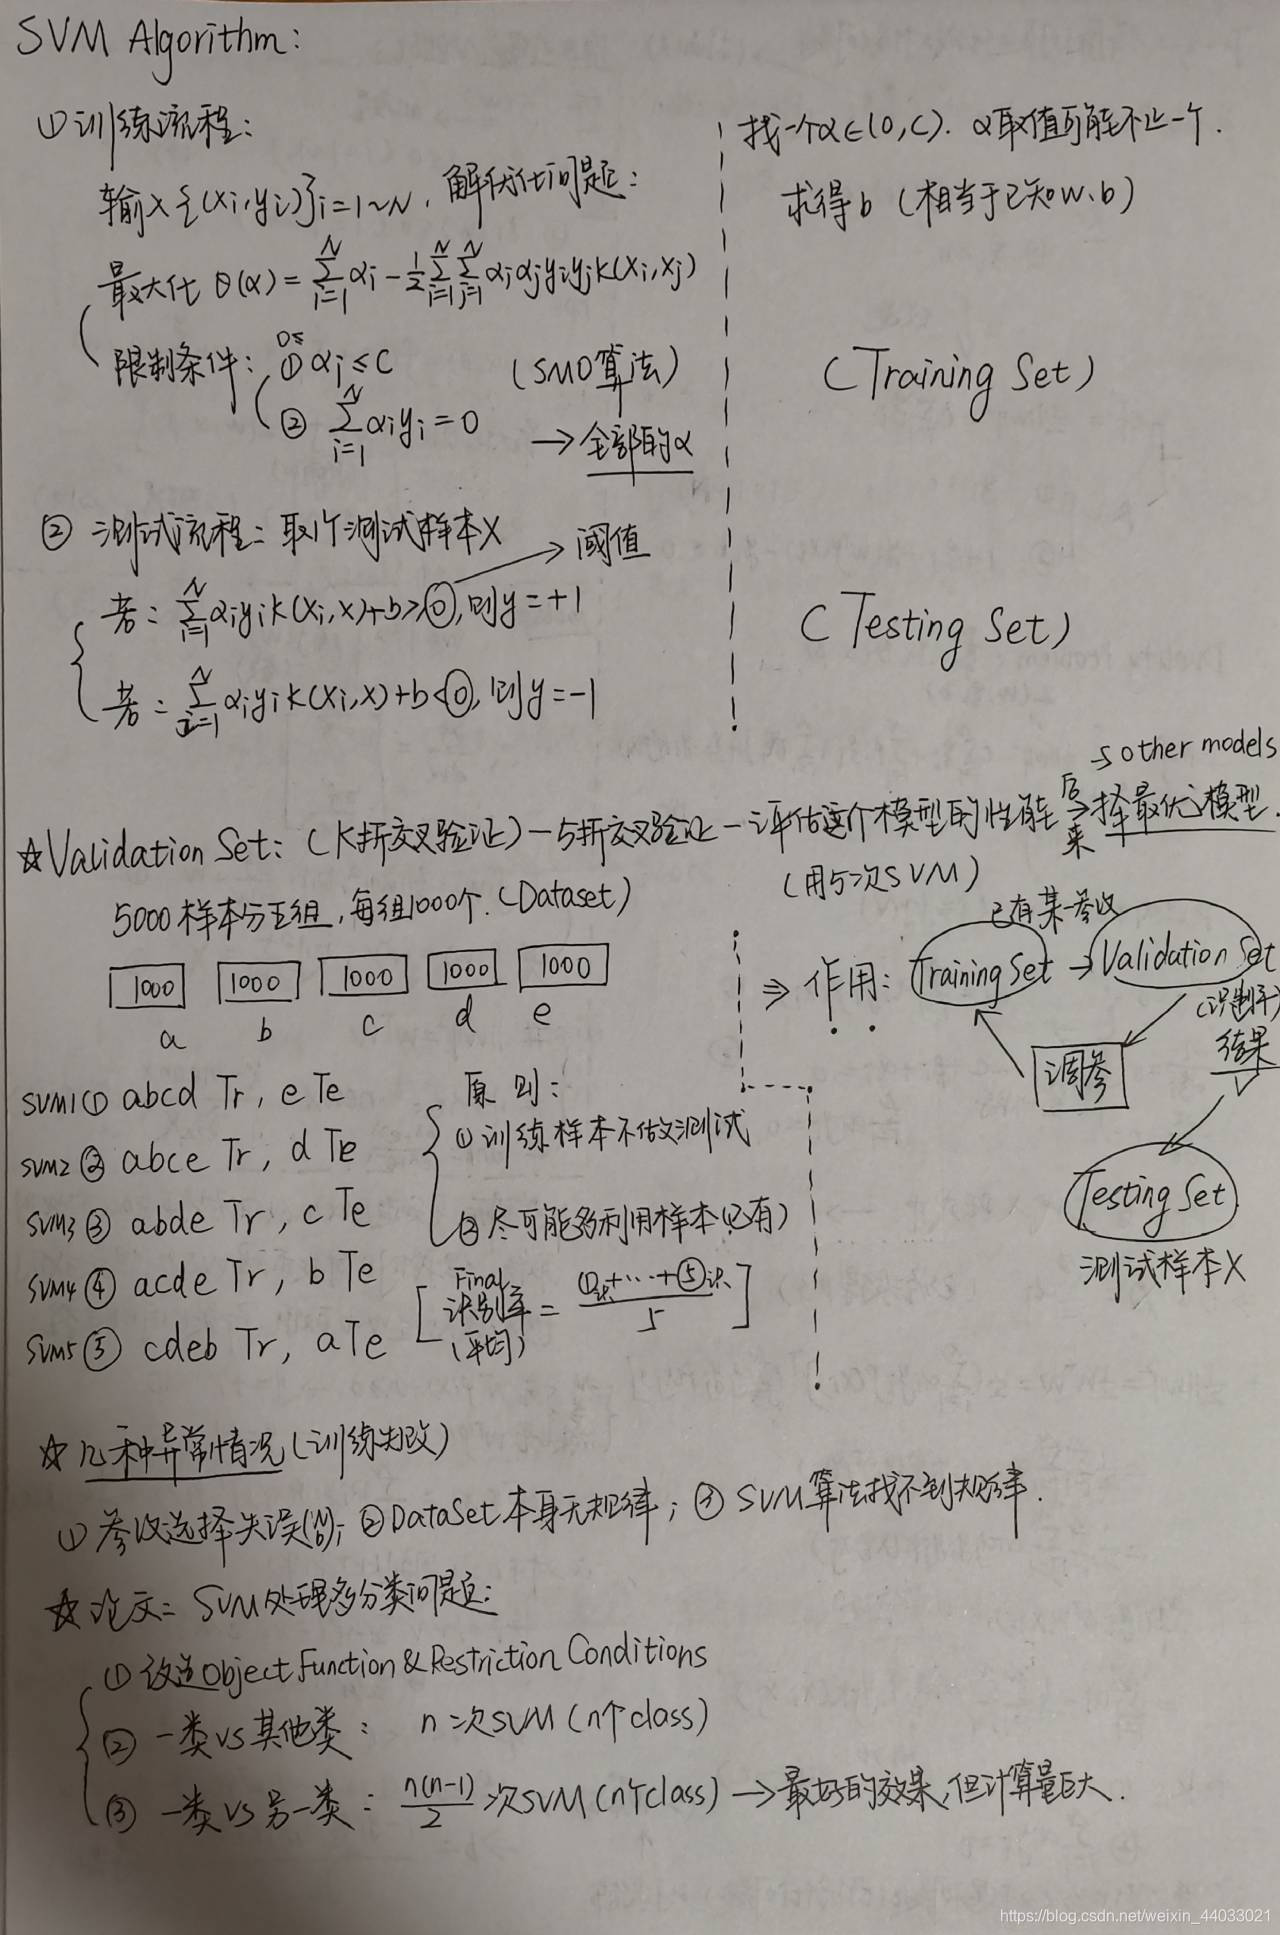 SVM Algorithm:
① 训练流程:
输入{(xi,yi)}i=1~N, 解优化问题:
最大化 θ(α) = ∑_{i=1}^{N} αi - 1/2 ∑_{i=1}^{N} ∑_{j=1}^{N} αiαjyiyjK(xi,xj)
限制条件: ① 0≤αi≤C (SMO算法)
② ∑_{i=1}^{N} αiyi=0 → 全部的α
找一个α∈(0,C). α取值可能不止一个.
求得b (相当于已知w、b)
(Training Set)
② 测试流程: 取1个测试样本X
→ 阈值
若: ∑_{i=1}^{N} αiyiK(xi,x)+b>0, 则y=+1
若: ∑_{i=1}^{N} αiyiK(xi,x)+b<0, 则y=-1
(Testing Set)
→ other models
☆Validation Set: (K折交叉验证) — 5折交叉验证 — 评估这个模型的性能 后来→ 择最优模型.
(用5次SVM)
5000样本分五组, 每组1000个. (Dataset)
1000 1000 1000 1000 1000
a b c d e
SVM1 ① abcd Tr, e Te
SVM2 ② abce Tr, d Te
SVM3 ③ abde Tr, c Te
SVM4 ④ acde Tr, b Te
SVM5 ⑤ cdeb Tr, a Te
原则:
① 训练样本不做测试
② 尽可能多利用样本(已有)
[Final 识别率 (平均) = (①识+…+⑤识)/5]
已有某一参数
⇒ 作用: Training Set → Validation Set
(识别率)
结果
调参
Testing Set
测试样本X
☆ 几种异常情况 (训练失败)
① 参数选择失误; ② DataSet本身无规律; ③ SVM算法找不到规律.
☆ 论文: SVM处理多分类问题:
① 改造Object Function & Restriction Conditions
② 一类 vs 其他类: n次SVM (n个class)
③ 一类 vs 另一类: n(n-1)/2 次SVM (n个class) → 最好的效果, 但计算量巨大.
https://blog.csdn.net/weixin_44033021